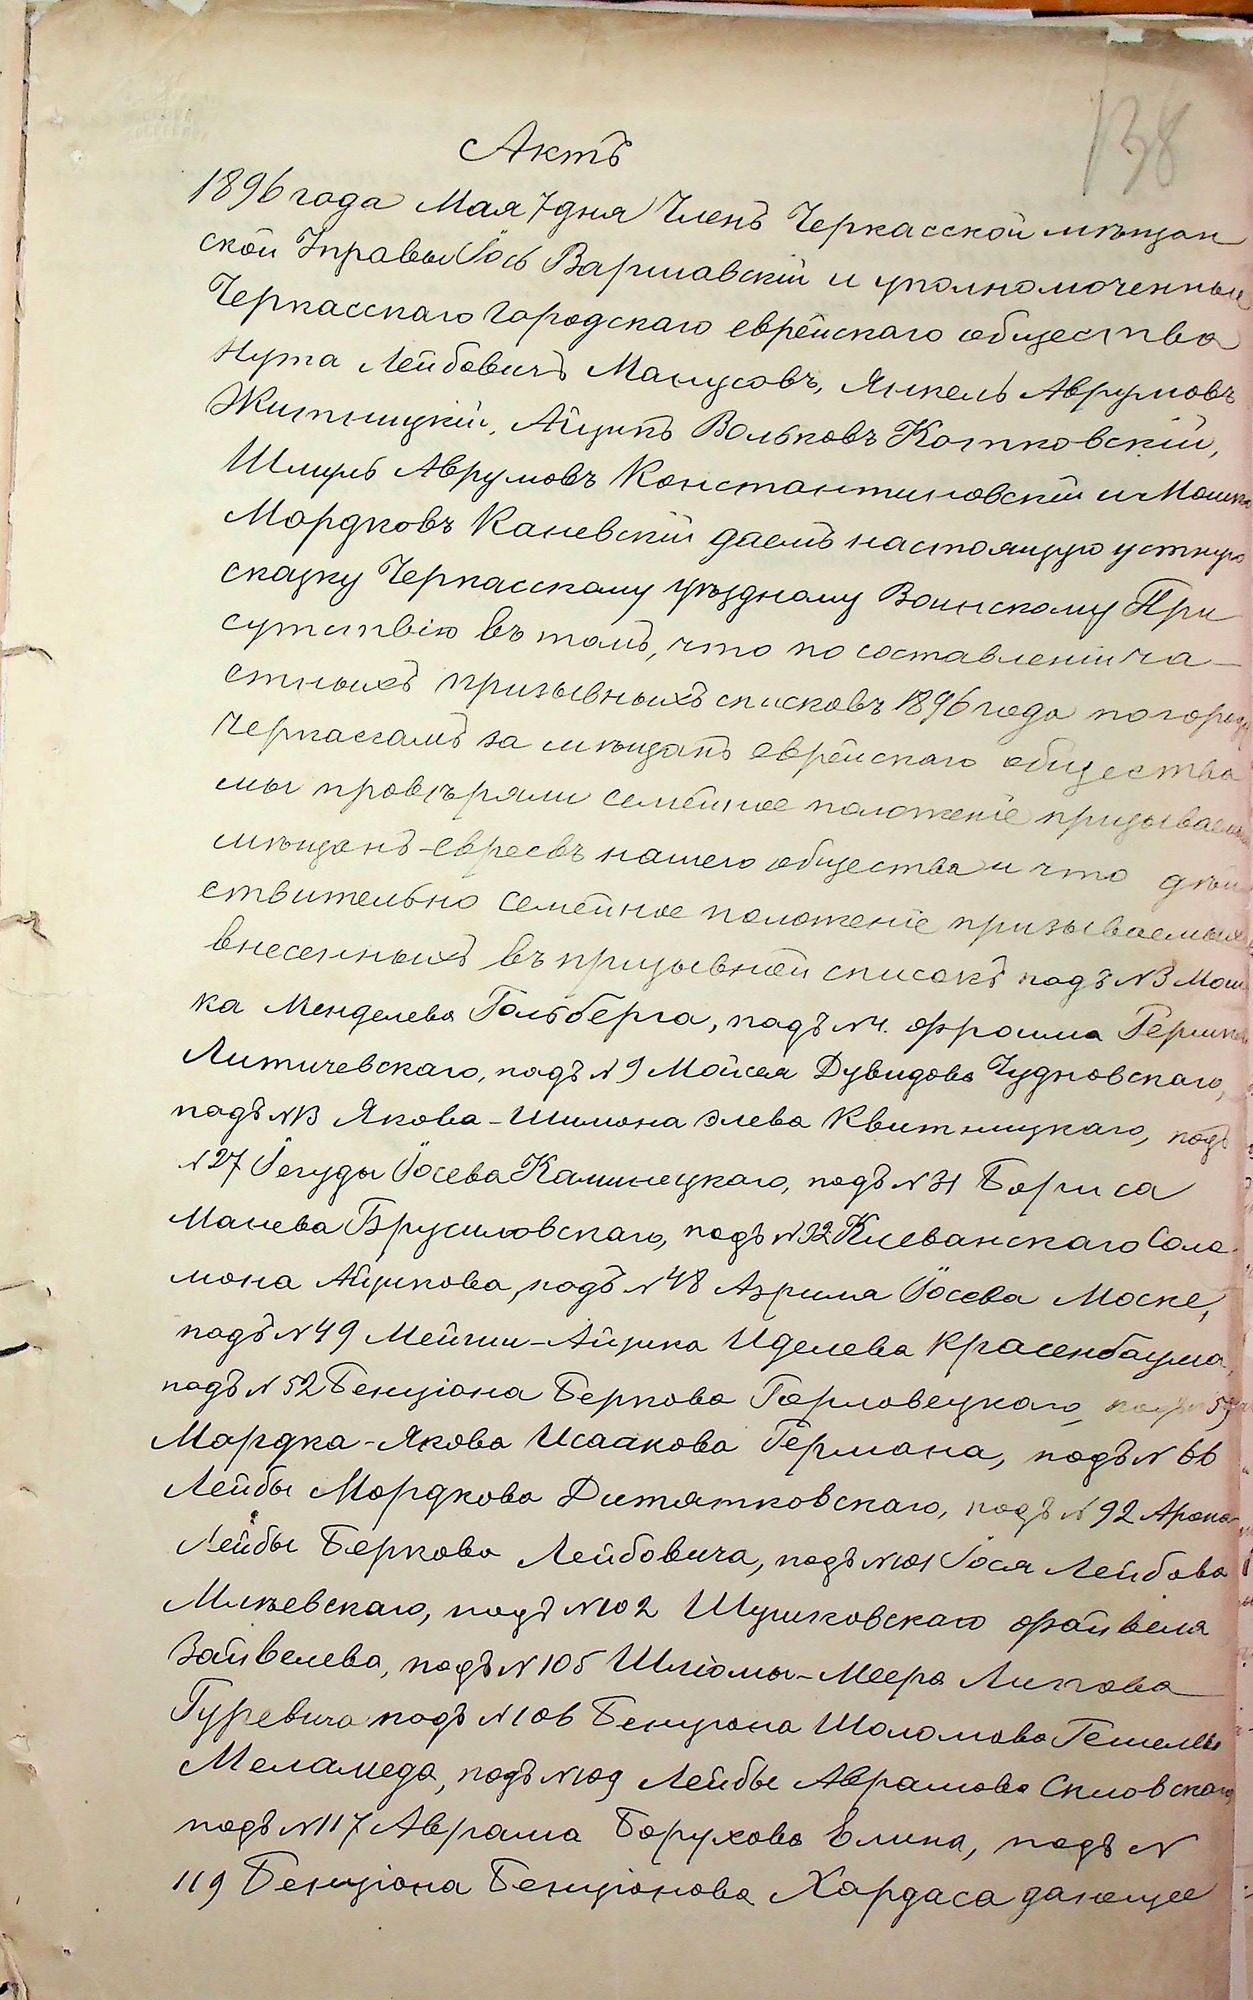 138
Актъ
1896 года Мая 7 дня Членъ Черкасской мѣщан
ской Управы Іось Варшавскій и уполномоченные
Черкасскаго городскаго еврейскаго общества
Нута Лейбовичъ Манусовъ, Янкель Аврумовъ
Житницкій, Айзикъ Вольковъ Котковскій,
Шмуль Аврумовъ Константиновскій и Мошко
Мордковъ Каневскій даемъ настоящую устную
сказку Черкасскому уѣздному Воинскому При
сутствію въ томъ, что по составленіи ча-
стныхъ призывныхъ списковъ 1896 года по городу
Черкассамъ за мѣщанъ еврейскаго общества
мы провѣряли семейное положеніе призываемыхъ
мѣщанъ-евреевъ нашего общества и что дѣй
ствительно семейное положеніе призываемыхъ
внесенныхъ въ призывной списокъ подъ №3 Мош
ка Менделева Гольберга, подъ №4. Фроима Гершкова
Литичевскаго, подъ №9 Мойсея Дувидова Чудновскаго,
подъ №13 Якова-Шимона Элева Квитницкаго, подъ
№27 Іегуды Іосева Каминецкаго, подъ №31 Бориса
Манева Брусиловскаго, подъ №32 Клеванскаго Соло
мона Айзикова, подъ №48 Азриля Іосева Моске,
подъ №49 Мейши-Айзика Иделева Красенбаума,
подъ №52 Бенціона Беркова Горловецкаго, подъ №59
Мордка-Якова Исаакова Германа, подъ №66
Лейбы Мордкова Дитятковскаго, подъ №92 Арона
Лейбы Беркова Лейбовича, подъ №101 Іося Лейбова
Млѣевскаго, подъ №102 Шушковскаго Файвеля
Зайвелева, подъ №105 Шліомы-Меера Липова
Гуревича подъ №106 Бенціона Шоломова Гешелева
Меламеда, подъ №109 Лейбы Аврамова
подъ №117 Аврама Борухова Елина, подъ №
119 Бенціона Бенціонова Хардаса дающее